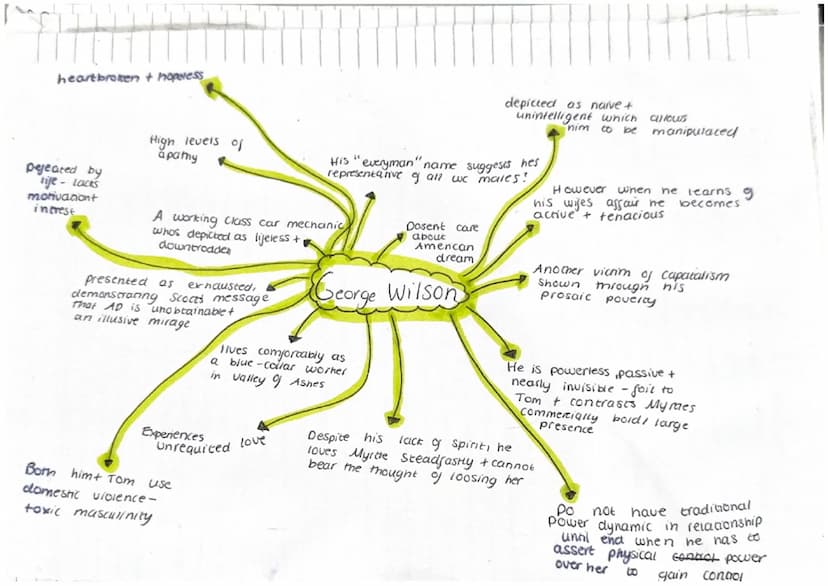 George Wilson
heartbroken + hopeless
High levels of
apathy
Defeated by
life - lacks
motivationt
intrest
His "everyman" name suggests hes
representative of all wc males!
A working class car mechanic
whos depicted as lifeless +
downtrodden
Dosent care
about
American
dream
depicted as naive +
unintelligent which allows
him to be manipulated
However when he learns of
his wifes affair he becomes
active + tenacious
Another victim of capatalism
shown through his
prosaic poverty
presented as exhausted,
demonstrating Scotts message
that AD is unobtainable +
an illusive mirage
lives comfortably as
a blue-collar worker
in valley of Ashes
He is powerless, passive +
nearly invisible - foil to
Tom + contrasts Myrtles
commercially bold/ large
presence
Experiences
unrequited love
Despite his lack of spirit, he
loves Myrtle steadfastly + cannot
bear the thought of loosing her
Both him + Tom use
domestic violence -
toxic masculinity
Do not have traditional
power dynamic in relationship
until end when he has to
assert physical control power
over her to gain control